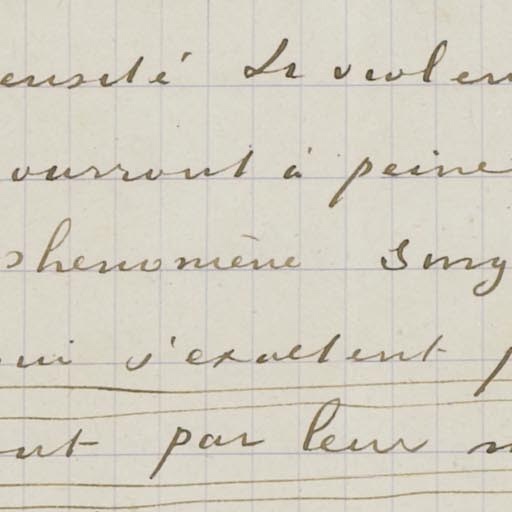 ensité si violen
ourront à peine
phenomène sing
ui s'exaltent p
ent par leur m